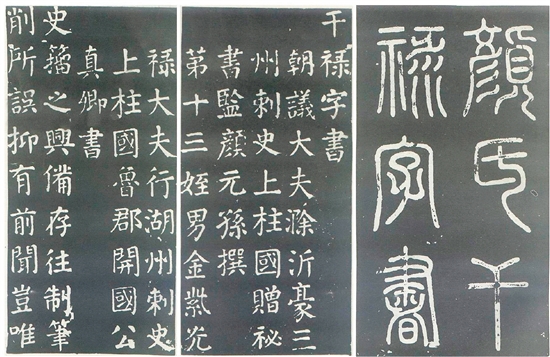 顏氏干
禄字書
干禄字書
朝議大夫滁沂豪三
州刺史上柱國贈祕
書監顏元孫撰
第十三姪男金紫光
禄大夫行湖州刺史
上柱國魯郡開國公
真卿書
史籀之興備存往制筆
削所誤抑有前聞豈唯